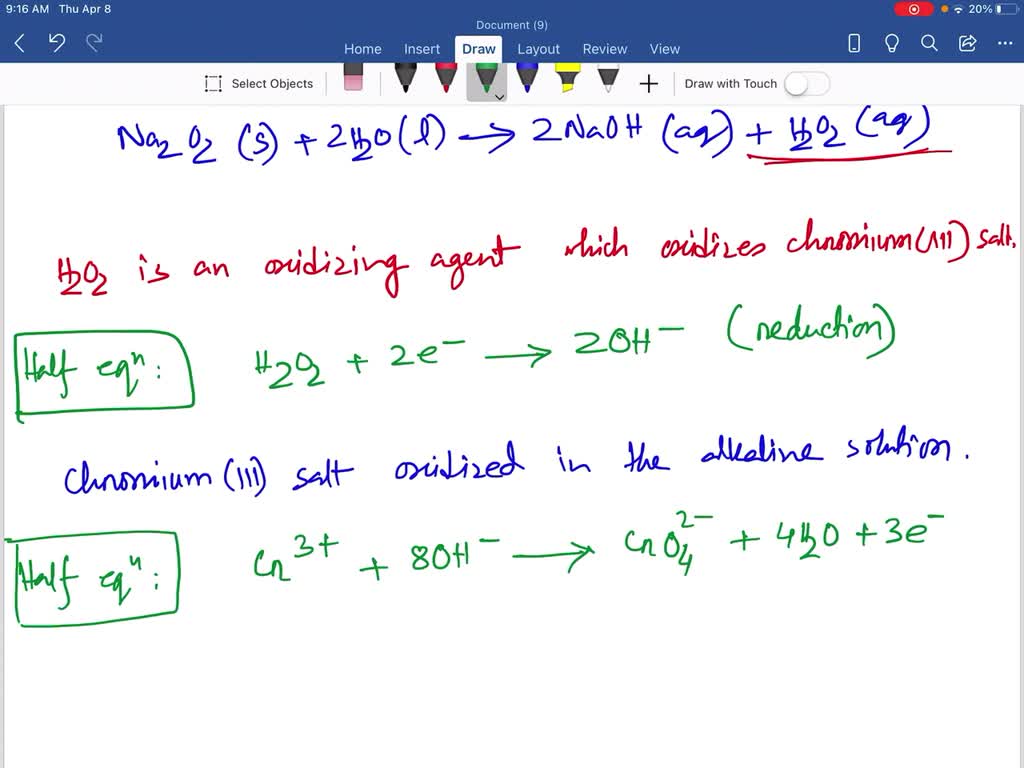 9:16 AM Thu Apr 8 20%
Document (9)
Home Insert Draw Layout Review View
Select Objects Draw with Touch
Na₂O₂ (s) + 2H₂O (l) → 2NaOH (aq) + H₂O₂ (aq)
H₂O₂ is an oxidizing agent which oxidizes chromium (III) salt.
Half eqⁿ: H₂O₂ + 2e⁻ → 2OH⁻ (reduction)
Chromium (III) salt oxidized in the alkaline solution.
Half eqⁿ: Cr³⁺ + 8OH⁻ → CrO₄²⁻ + 4H₂O + 3e⁻